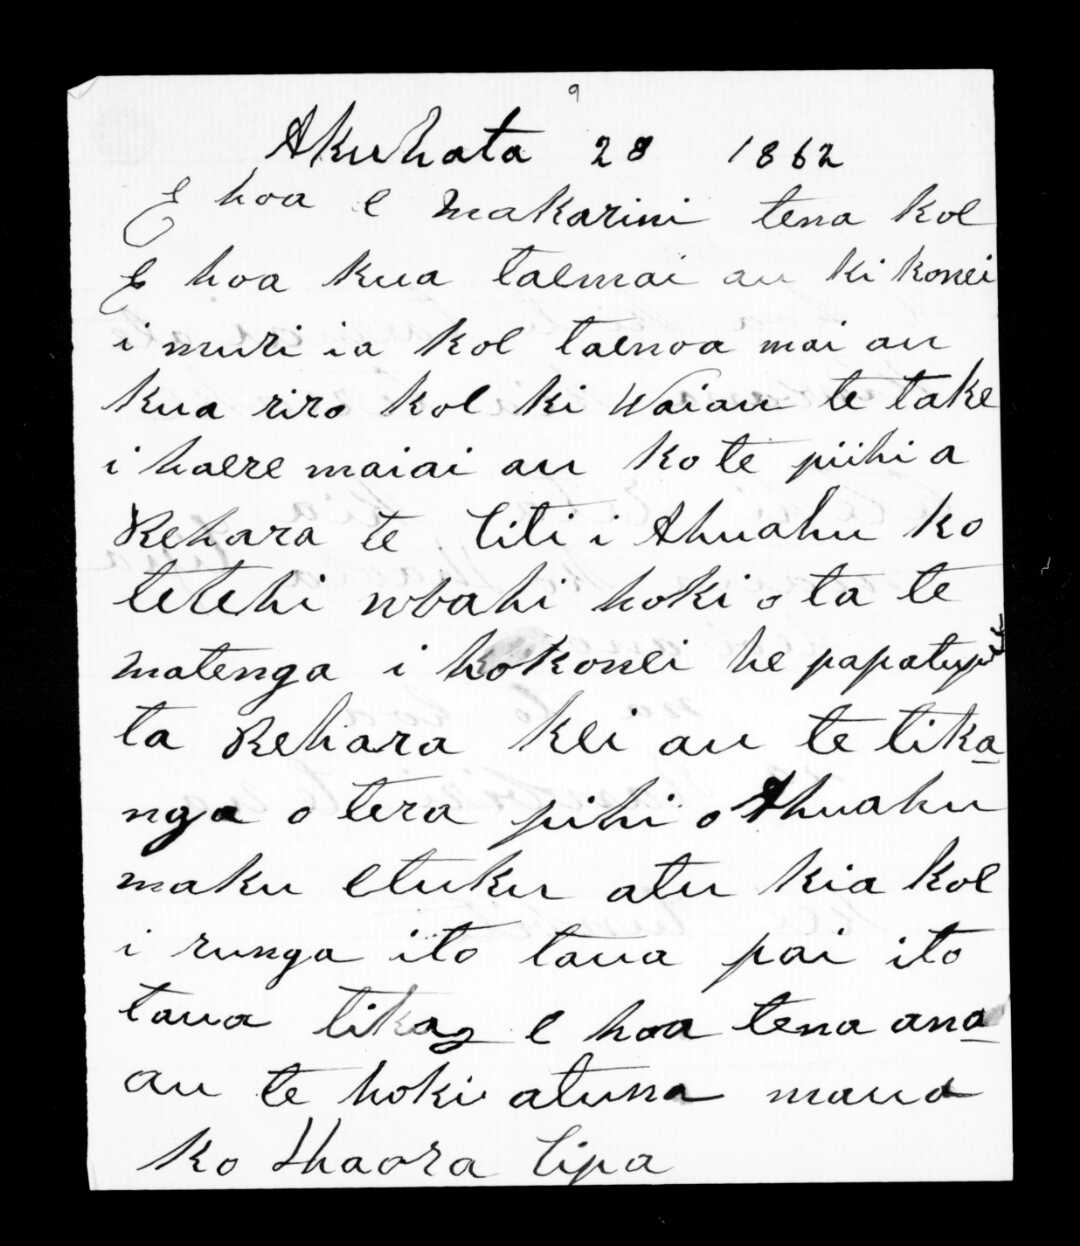 9
Akuhata 28 1862
E hoa e Makarini tena koe
E hoa kua taemai au ki konei
i muri ia koe taenoa mai au
kua riro koe ki Waiau te take
i haere maiai au ko te piihi a
Rehara te Titi i Ahuahu ko
tetehi wahi hoki o ta te
matenga i ko konei he papatupu
ta Rehara kei au te tika
nga o tera pihi o Ahuahu
maku etuku atu kia koe
i runga ito taua pai ito
taua tika e hoa tena ana
au te hoki atuna maua
ko Ihaora Tipa